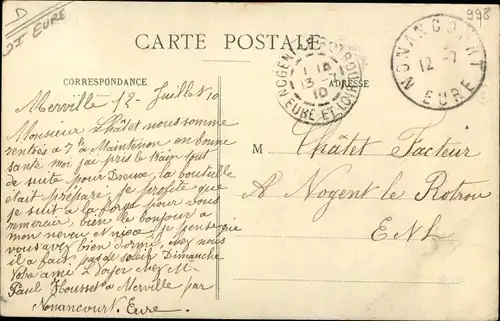 D
27 EURE
998
CARTE POSTALE
CORRESPONDANCE
ADRESSE
NOGENT-LE-ROTROU
13-7
10
EURE-ET-LOIR
NONANCOURT
12-7
EURE
Merville 12 Juillet 10
Monsieur Châtet nous somme
rentrés a 7h a Maintenon en bonne
santé moi jai pris le train tout
de suite pour Dreux la bouteille
était préparé je profite que
je suit a la forge pour vous
remercier, bien le bonjour a
mon neveu et nièce je pense que
vous avez bien dormi, chez nous
il a fait pas de soleil Dimanche
Votre ami chez M-
Paul Housset a Merville par
Nonancourt. Eure.
M Châtet Facteur
A Nogent le Rotrou
E&L